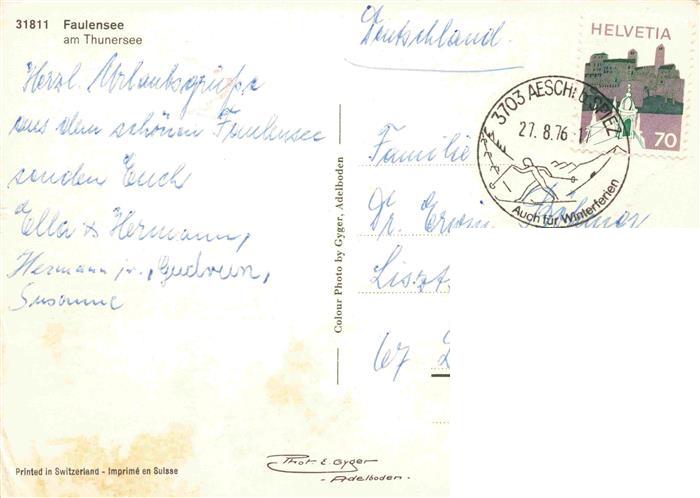 31811 Faulensee
am Thunersee
Herzl. Urlaubsgrüße
aus dem schönen Faulensee
senden Euch
Ella & Hermann,
Hermann jr., Gudrun,
Susanne
Colour Photo by Gyger, Adelboden
Deutschland
HELVETIA
70
3703 AESCHI b. SPIEZ
27.8.76.-17
Auch für Winterferien
Familie
Dr. Erwin
Liszt
67
Printed in Switzerland - Imprimé en Suisse
Phot. E. Gyger
- Adelboden. -